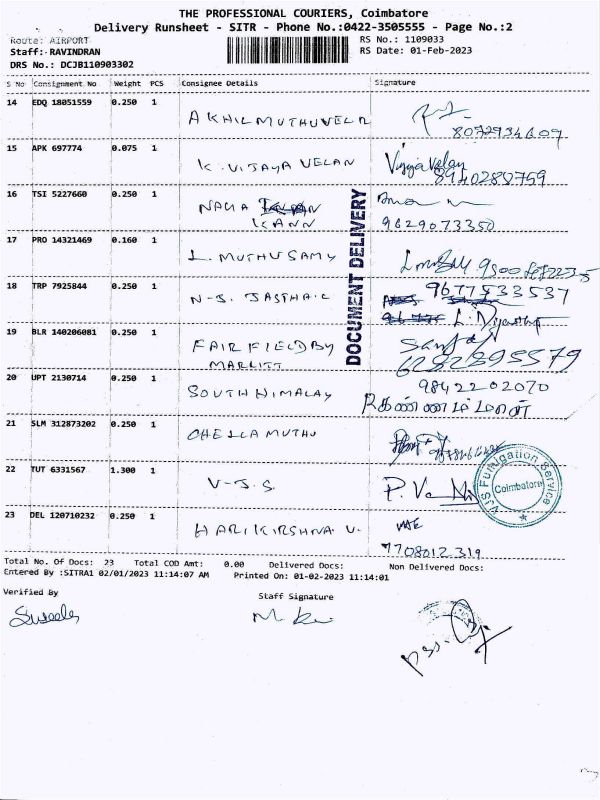 THE PROFESSIONAL COURIERS, Coimbatore
Delivery Runsheet - SITR - Phone No.:0422-3505555 - Page No.:2
Route: AIRPORT
RS No.: 1109033
Staff: RAVINDRAN
RS Date: 01-Feb-2023
DRS No.: DCJB110903302
S No Consignment No Weight PCS Consignee Details Signature
14 EDQ 18051559 0.250 1
AKHIL MUTHUVELR
8072934609
15 APK 697774 0.075 1
K. VIJAYA VELAN
Vijaya Velan
8940288759
16 TSI 5227660 0.250 1
NAGA
KANN
9629073350
17 PRO 14321469 0.160 1
L. MUTHUSAMY
18 TRP 7925844 0.250 1
N-S. JASTHA.C
9677533537
19 BLR 140206081 0.250 1
FAIRFIELD BY
MARLITT
Sanjai
6282895579
20 UPT 2130714 0.250 1
SOUTH HIMALAY
9842202070
21 SLM 312873202 0.250 1
CHELLA MUTHU
22 TUT 6331567 1.300 1
V-J.S.
VJS Fumigation Service
Coimbatore
23 DEL 120710232 0.250 1
HARIKIRSHNA V.
7708012319
DOCUMENT DELIVERY
Total No. Of Docs: 23 Total COD Amt: 0.00 Delivered Docs: Non Delivered Docs:
Entered By :SITRA1 02/01/2023 11:14:07 AM Printed On: 01-02-2023 11:14:01
Verified By
Staff Signature